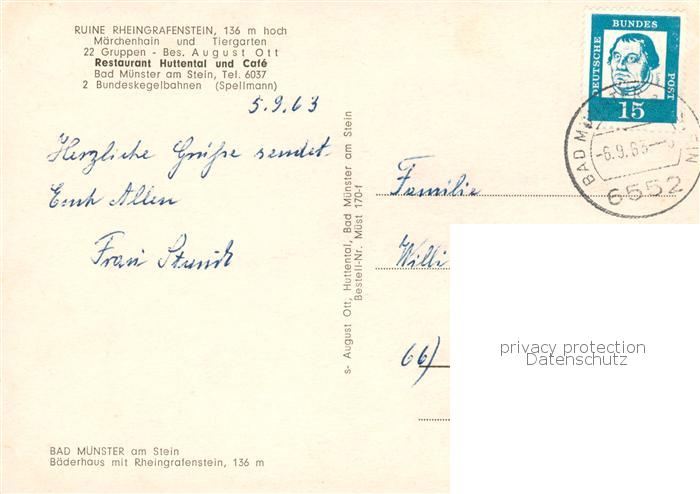 RUINE RHEINGRAFENSTEIN, 136 m hoch
Märchenhain und Tiergarten
22 Gruppen - Bes. August Ott
Restaurant Huttental und Café
Bad Münster am Stein, Tel. 6037
2 Bundeskegelbahnen (Spellmann)
5.9.63
Herzliche Grüße sendet
Euch Allen
Frau
BAD MÜNSTER am Stein
Bäderhaus mit Rheingrafenstein, 136 m
s- August Ott, Huttental, Bad Münster am Stein
Bestell-Nr. Müst 170-f
DEUTSCHE
BUNDES
POST
15
BAD
-6.9.63
6552
Familie
Willi
66)
privacy protection
Datenschutz